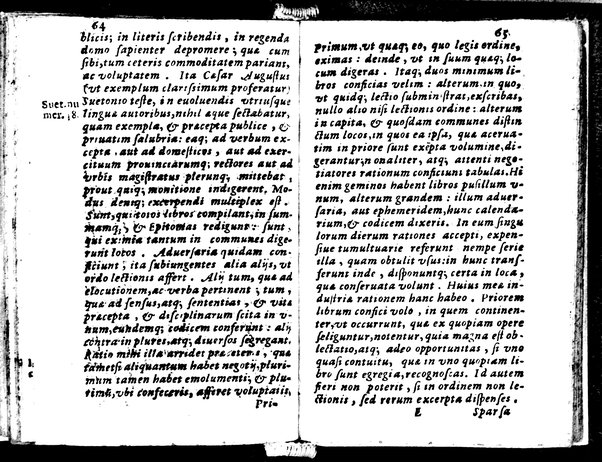 64
blicis; in literis scribendis, in regenda
domo sapienter depromere; quæ cum
sibi, tum ceteris commoditatem pariant,
ac voluptatem. Ita Cæsar Augustus
(vt exemplum clarissimum proferatur)
Suet. nu
Suetonio teste, in euoluendis vtriusque
mer. 98.
linguæ autoribus, nihil æque sectabatur,
quam exempla, & præcepta publice, &
priuatim salubria: eaq; ad verbum ex-
cepta, aut ad domesticos, aut ad exer-
cituum prouinciarumq; rectores aut ad
vrbis magistratus plerunq; mittebat,
prout quiq; monitione indigerent. Mo-
dus deniq; excerpendi multiplex est.
Sunt, qui totos libros compilant, in sum-
mamq; & Epitomas redigunt: sunt,
qui eximia tantum in communes dige-
runt locos. Aduersaria quidam con-
ficiunt; ita subiungentes alia alijs, vt
ordo lectionis affert. Alij tum, quæ ad
elocutionem, ac verba pertinent; tum,
quæ ad sensus, atq; sententias, & vitæ
præcepta, & disciplinarum scita in v-
num, eundemq; codicem conferunt: alij
contra in plures, atq; diuersos segregant.
Ratio mihi illa arridet præ ceteris, quæ
tametsi aliquantum habet negotij, pluri-
mum tamen habet emolumenti; & plu-
rimũ, vbi confeceris, afferet voluptatis.
Pri-
65
Primum, vt quæq; eo, quo legis ordine,
eximas: deinde, vt in suum quæq; lo-
cum digeras. Itaq; duos minimum li-
bros conficias velim: alterum, in quo,
vt quidq; lectio subministras, exscribas,
nullo alio nisi lectionis ordine: alterum
in capita, & quosdam communes distin
ctum locos, in quos ea ipsa, quæ acerua-
tim in priore sunt excepta volumine, di-
gerantur; non aliter, atq; attenti nego-
tiatores rationum conficiunt tabulas. Hi
enim geminos habent libros pusillum v-
num, alterum grandem: illum aduer-
saria, aut ephemeridem, hunc calenda-
rium, & codicem dixeris. In eum singu
lorum dierum rationes accepti, expen-
siue tumultuarie referunt nempe serie
illa, quam obtulit vsus: in hunc trans-
ferunt inde, disponuntq; certa in loca,
quæ conseruata volunt. Huius mea in-
dustria rationem hanc habeo. Priorem
librum confici volo, in quem continen-
ter, vt occurrunt, quæ ex quopiam opere
seliguntur, notentur, quia magna est ob-
lectatio, atq; adeo opportunitas, si vno
quasi contuitu, quæ in vno quopiam li-
bro sunt egregia, recognoscas. Id autem
fieri non poterit, si in ordinem non le-
ctionis, sed rerum excerpta dispenses.
E
Sparsa